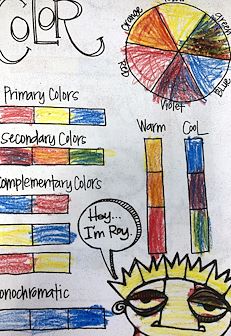 COLOR
Orange
Green
Red
Blue
Violet
Primary Colors
Secondary Colors
Warm
Cool
Complementary Colors
Hey...
I'm Roy.
onochromatic